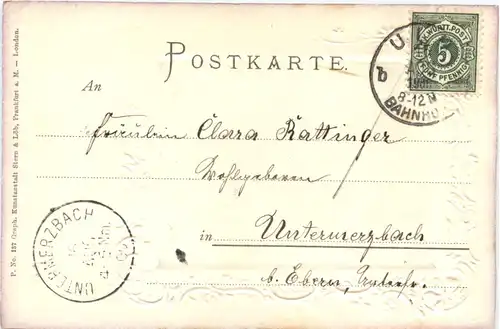 POSTKARTE.
An
Fräulein Clara Rattinger
Wohlgeboren
in Untermerzbach
b. Ebern,
K. WÜRTT. POST
5
FÜNF PFENNIG
U
b
8-12 N
BAHNHO
UNTERMERZBACH
P. No. 157 Graph. Kunstanstalt Stern & Löb, Frankfurt a. M. — London.